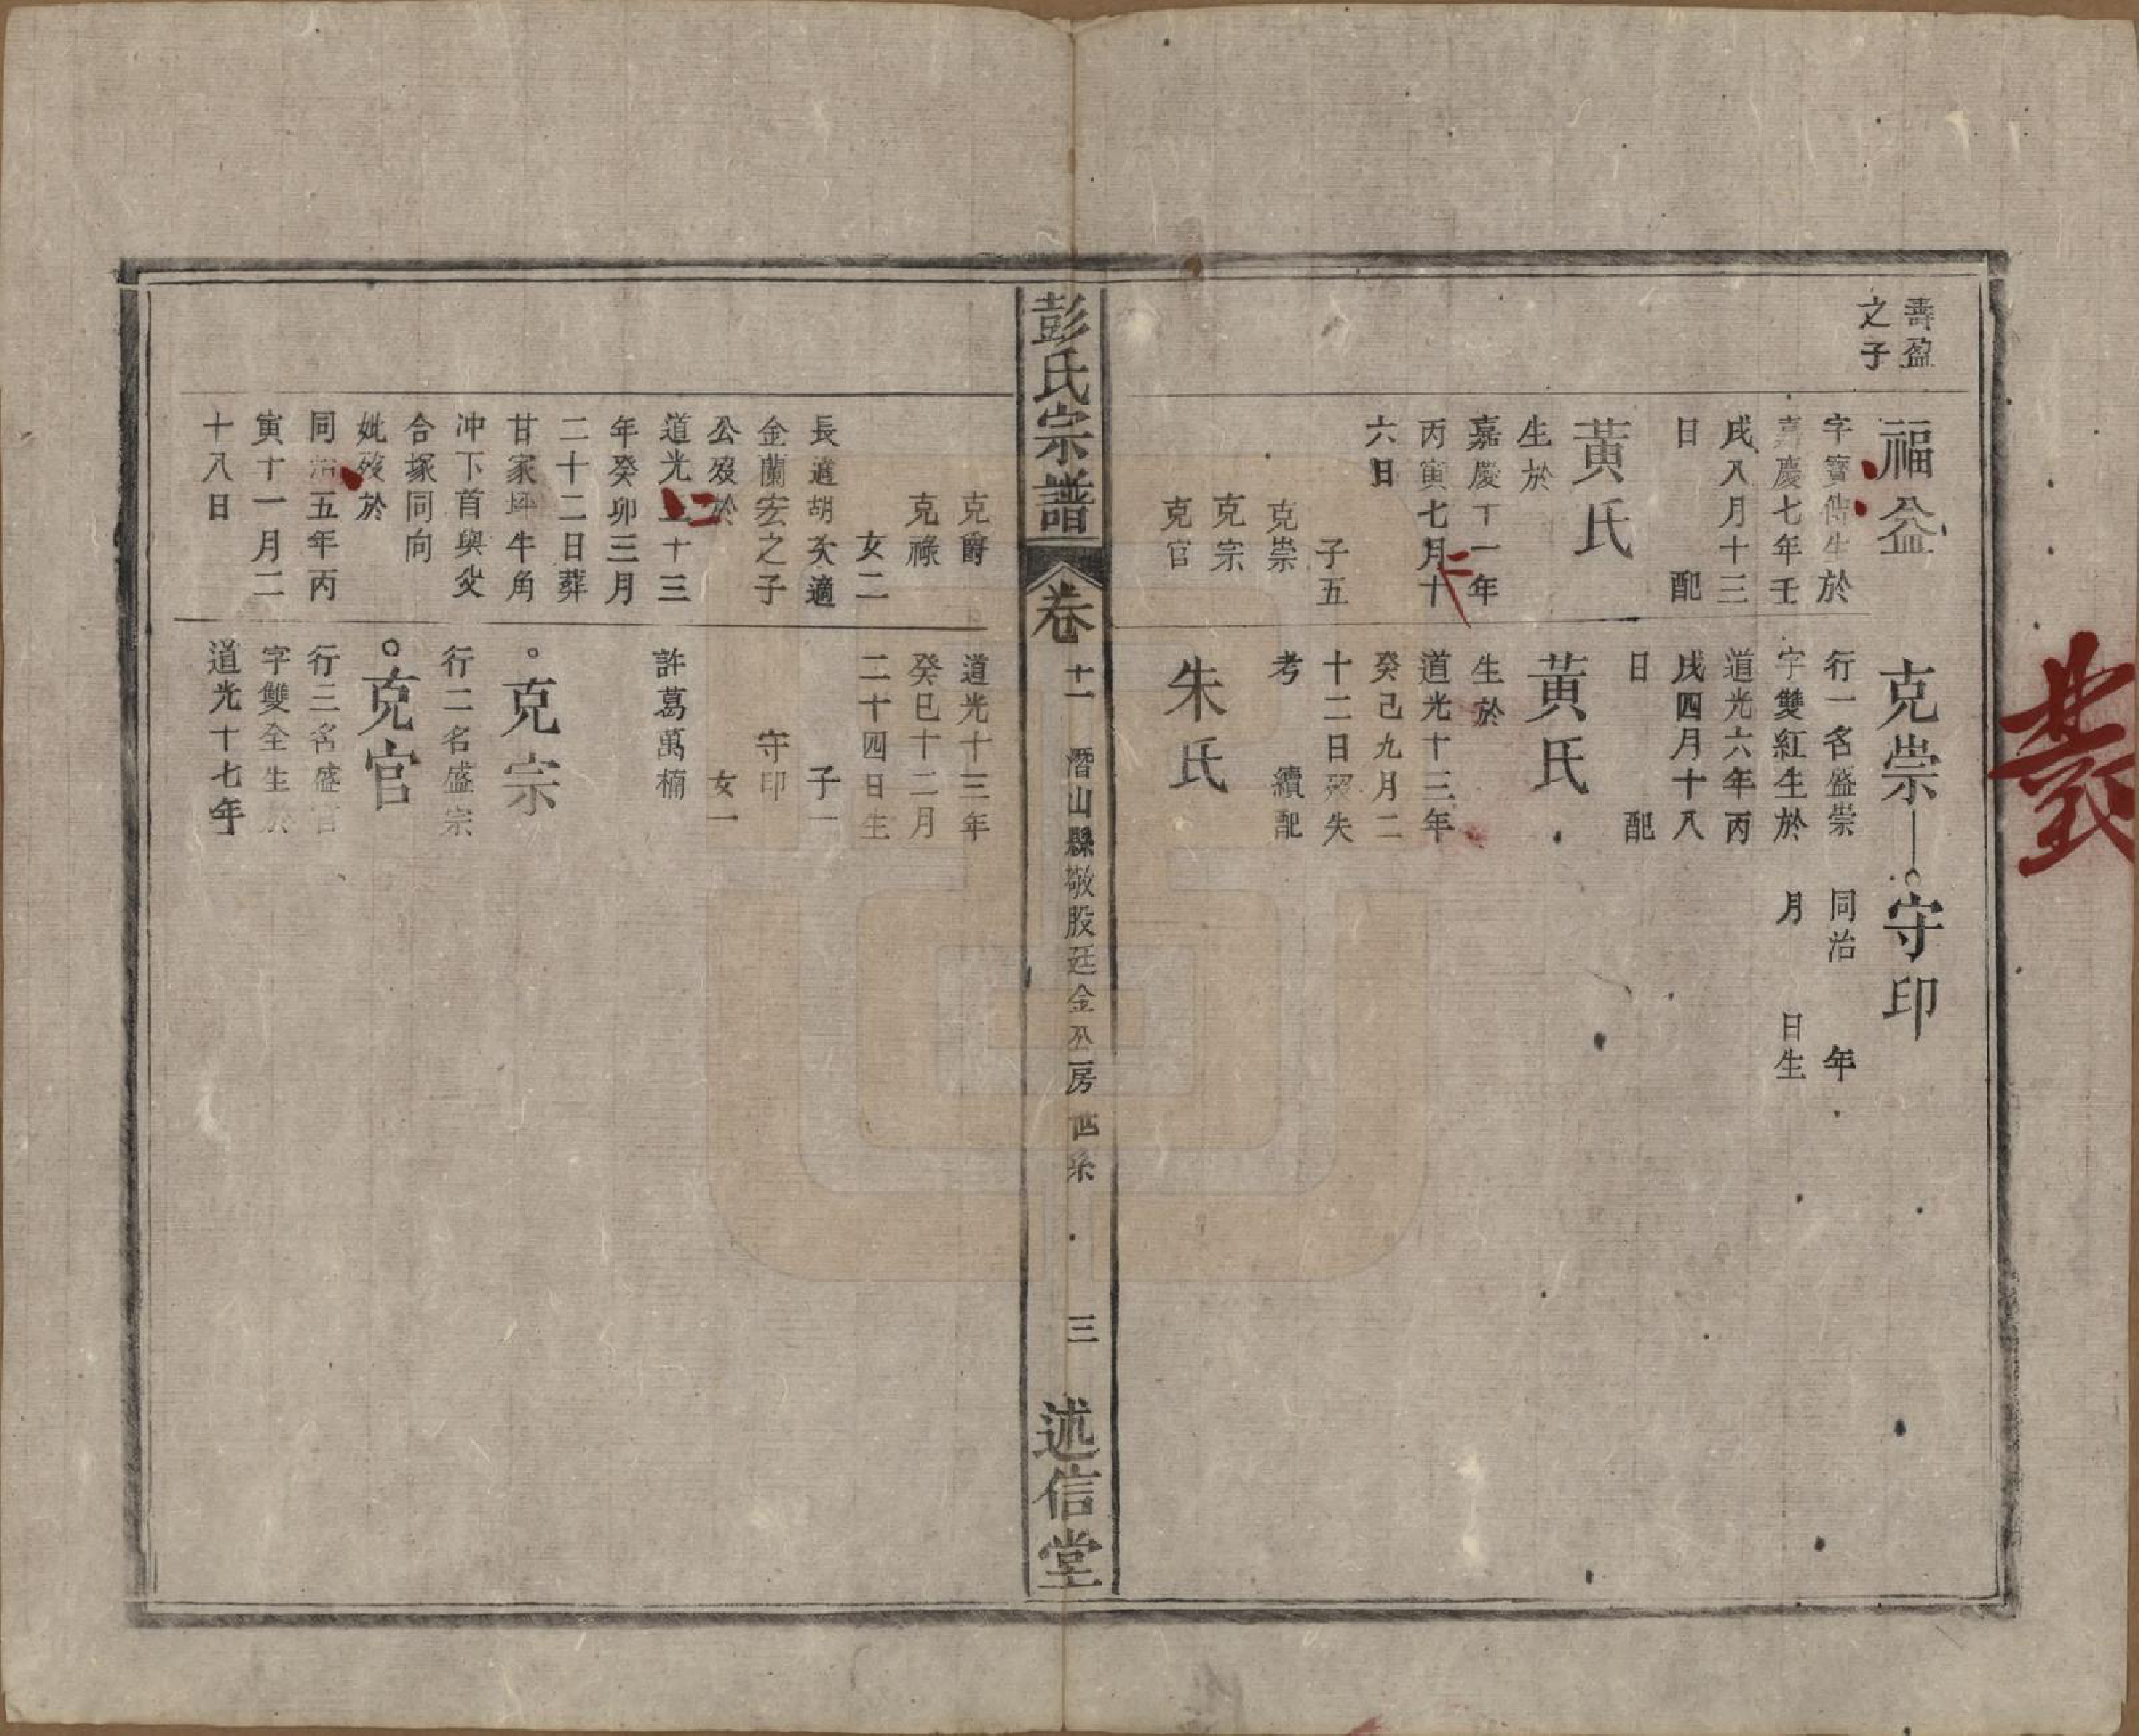 壽盈
之子
福益
字寶傳生於
嘉慶七年壬
戌八月十三
日　配
黃氏
生於
嘉慶十一年
丙寅七月十
六日
子五
克崇
克宗
克官
克崇
行一名盛崇
字雙紅生於
道光六年丙
戌四月十八
日　配
黃氏
生於
道光十三年
癸己九月二
十二日歿失
考　續配
朱氏
守印
同治　年
月　日生
彭氏宗譜
卷十一　潛山縣敬股廷金公房世系　三
述信堂
克爵
克祿
女二
長適胡次適
金蘭宏之子
公歿於
道光二十三
年癸卯三月
二十二日葬
甘家坪牛角
冲下首與父
合塚同向
妣歿於
同治五年丙
寅十一月二
十八日
道光十三年
癸巳十二月
二十四日生
子一
守印
女一
許葛萬楠
克宗
行二名盛宗
克官
行三名盛官
字雙全生於
道光十七年